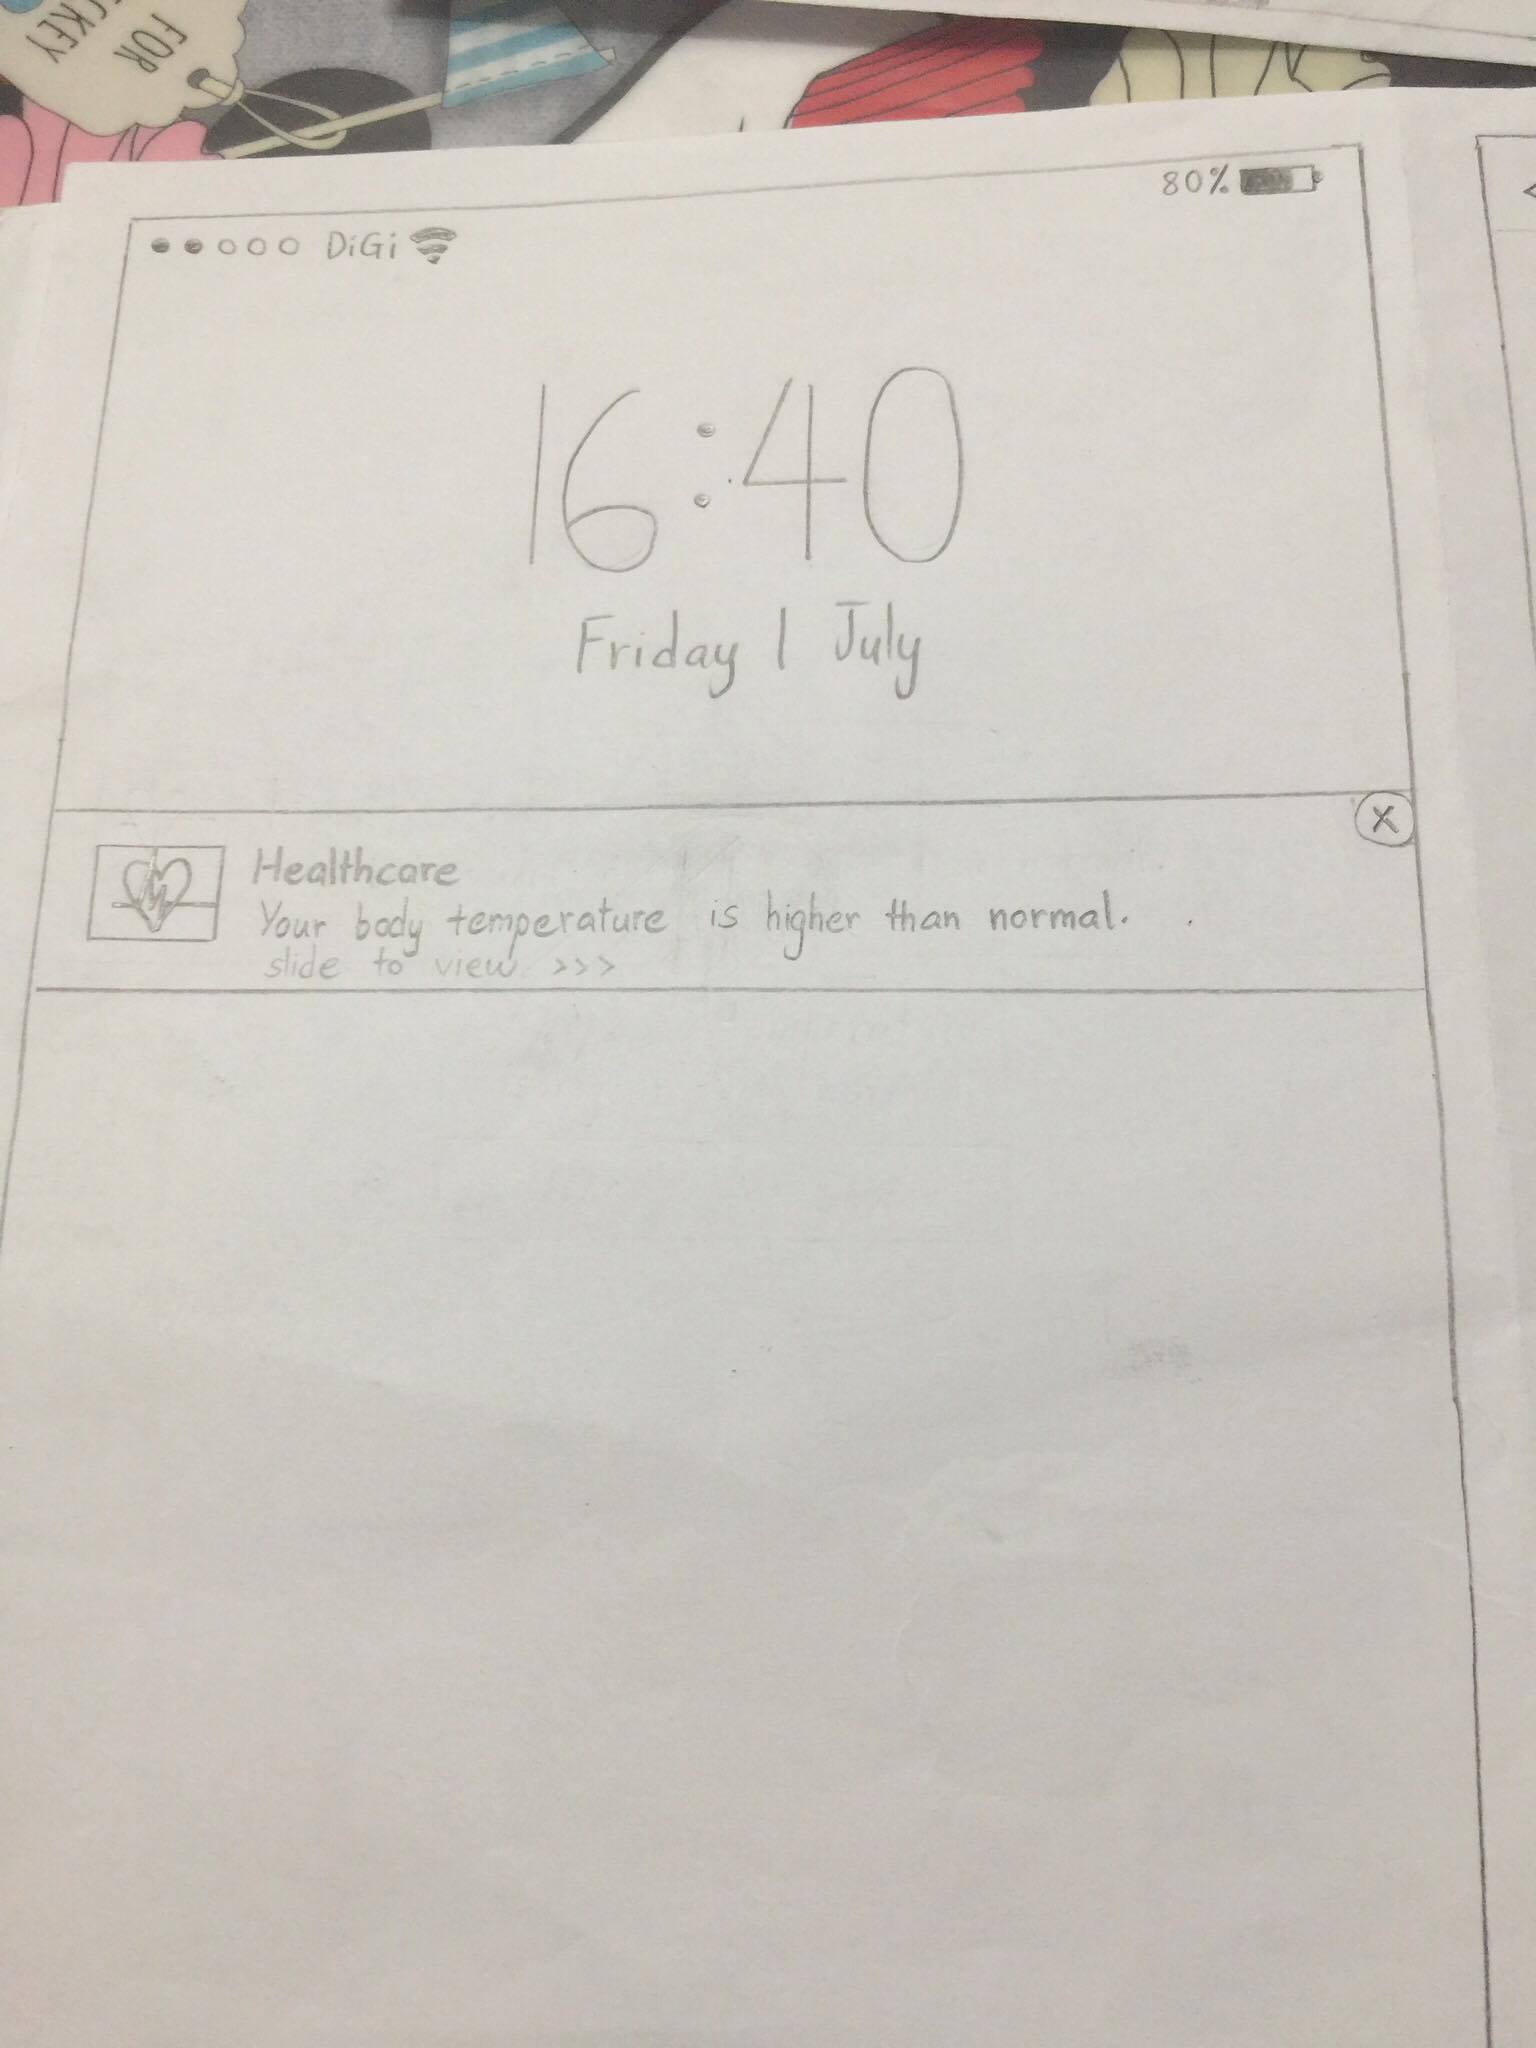 FOR
80%
DiGi
16:40
Friday 1 July
x
Healthcare
Your body temperature is higher than normal.
slide to view >>>